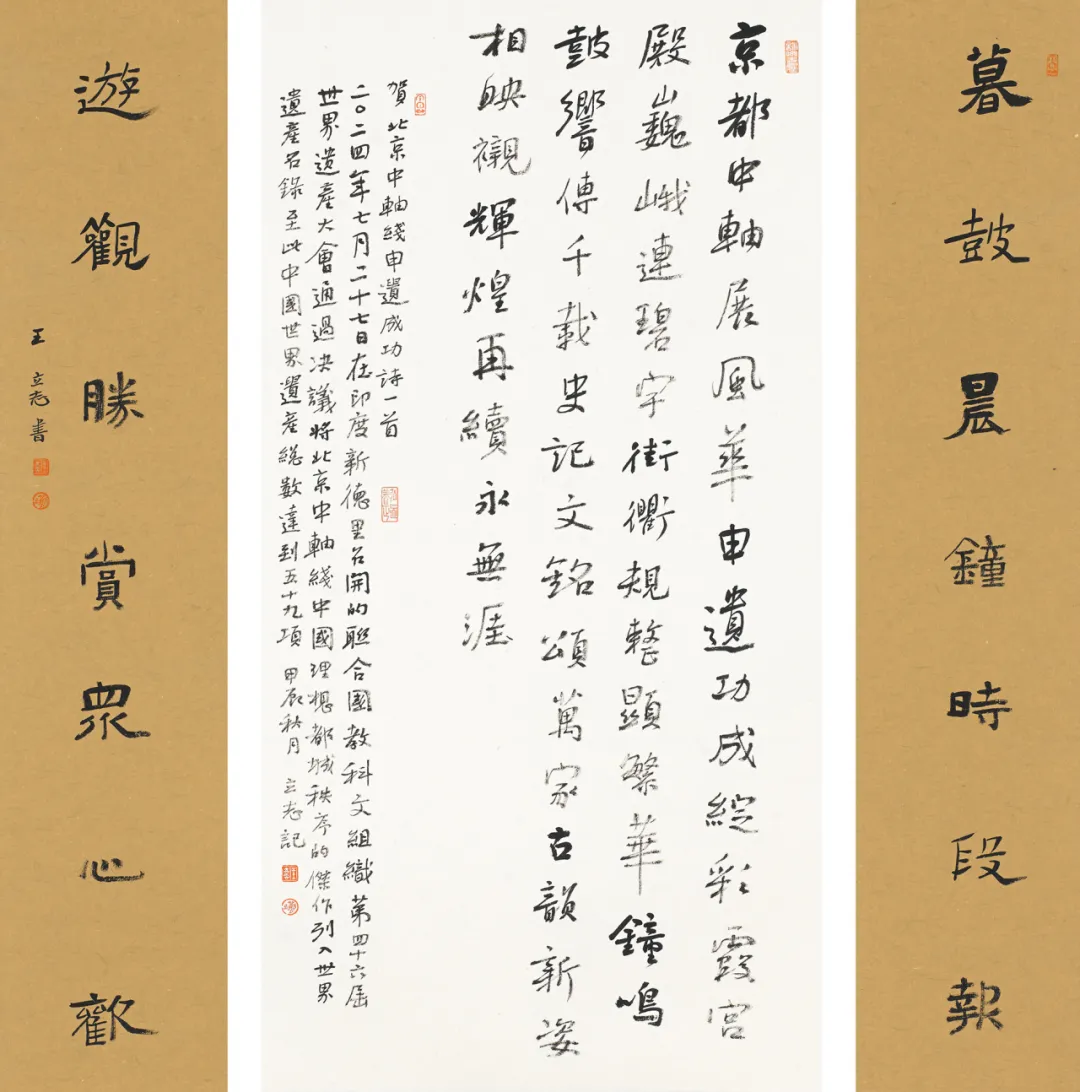 暮鼓晨鐘時段報
京都中軸展風華申遺功成綻彩霞宮
殿巍峨連碧宇街衢規整顯繁華鐘鳴
鼓響傳千載史記文銘頌萬家古韻新姿
相映襯輝煌再續永無涯
賀北京中軸綫申遺成功詩一首
二〇二四年七月二十七日在印度新德里召開的聯合國教科文組織第四十六屆
世界遺產大會通過决議將北京中軸綫中國理想都城秩序的傑作列入世界
遺產名錄至此中國世界遺產總數達到五十九項 甲辰秋月 立志記
遊觀勝賞眾心歡
王立志書